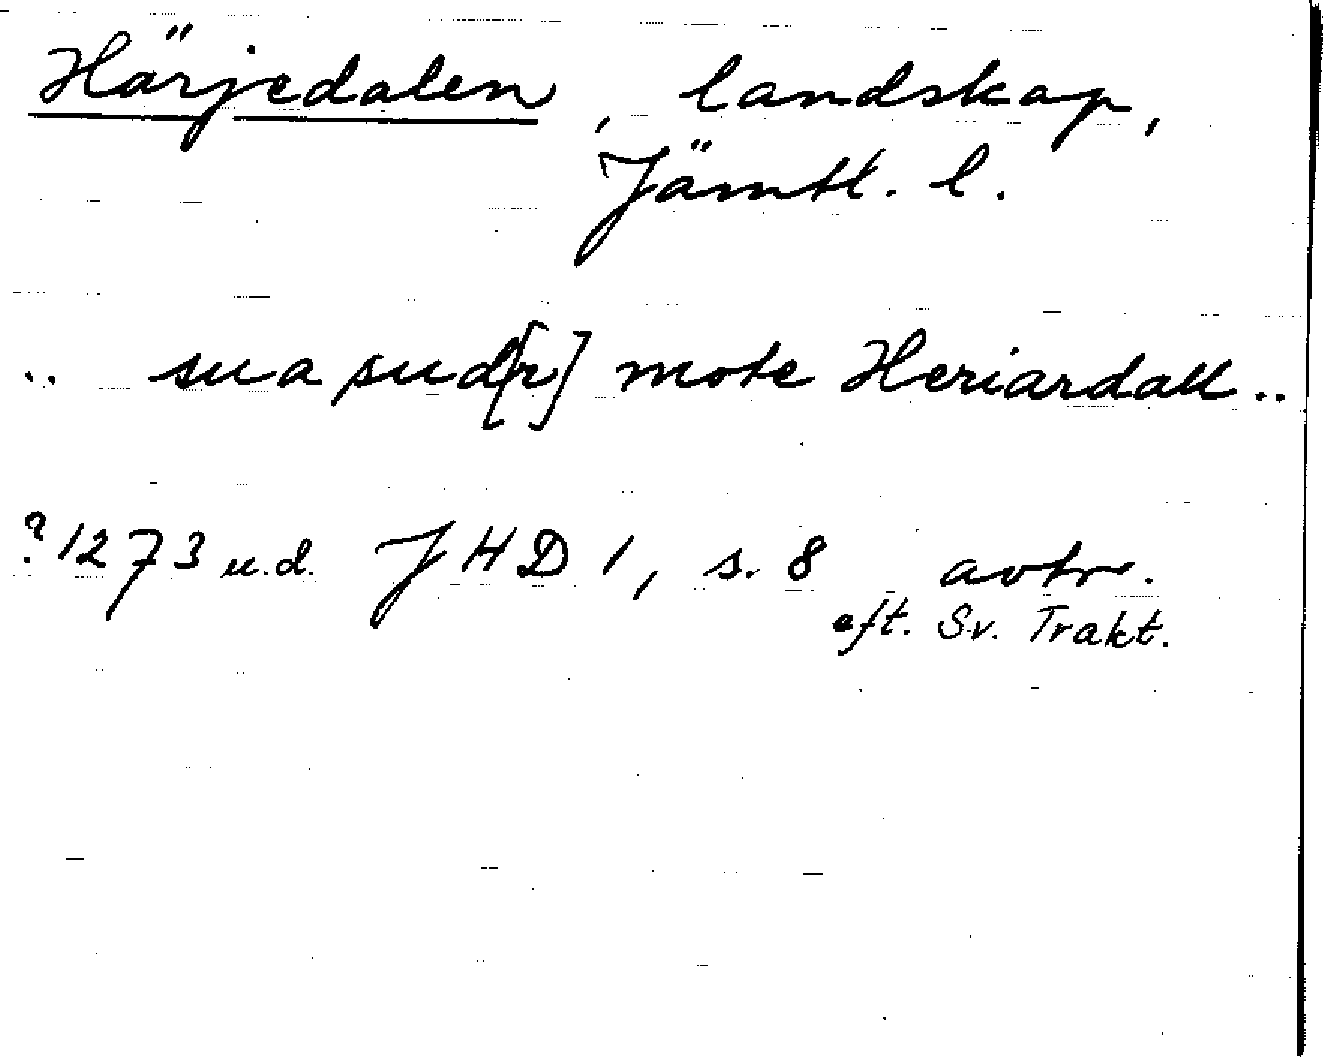 Härjedalen, landskap,
Jämtl. l.
.. sua sud[r] mote Heriardall ..
? 1273 u.d. JHD 1, s. 8 avtr.
eft. Sv. Trakt.